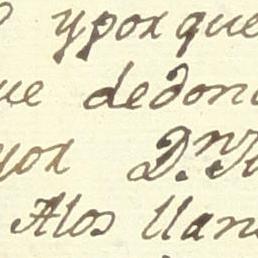 yporque
ue dedon
yor D.n
Alos llan